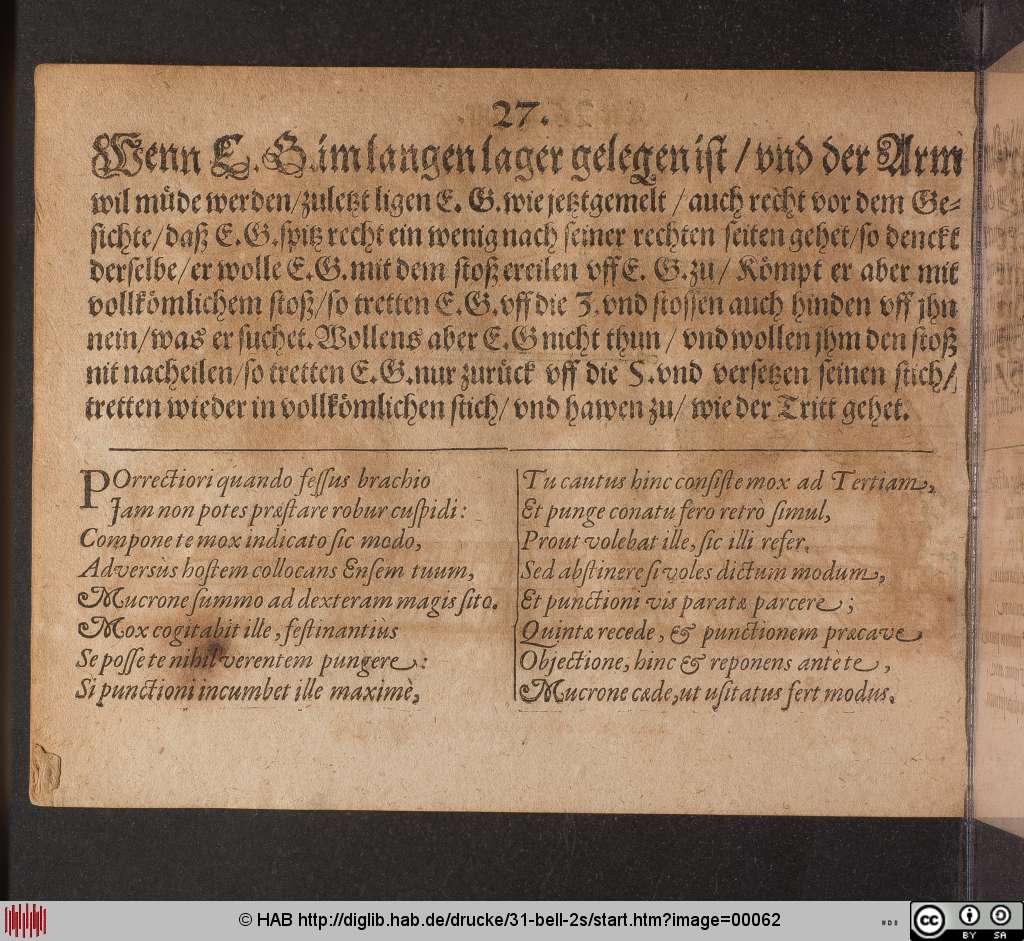 27.
Wenn E. G. im langen lager gelegen ist / vnd der Arm
wil müde werden/zuletzt ligen E. G. wie jetztgemelt / auch recht vor dem Ge-
sichte/daß E. G. spitz recht ein wenig nach seiner rechten seiten gehet/so denckt
derselbe/er wolle E. G. mit dem stoß ereilen vff E. G. zu/ Kömpt er aber mit
vollkömlichem stoß/so tretten E. G. vff die 3. vnd stossen auch hinden vff jhn
nein/was er suchet. Wollens aber E. G nicht thun / vnd wollen jhm den stoß
nit nacheilen/so tretten E. G. nur zurück vff die 5. vnd versetzen seinen stich/
tretten wieder in vollkömlichen stich/ vnd hawen zu/ wie der Tritt gehet.
POrrectiori quando feſſus brachio
Jam non potes præſtare robur cuſpidi:
Compone te mox indicato ſic modo,
Adversùs hoſtem collocans Enſem tuum,
Mucrone ſummo ad dexteram magis ſito.
Mox cogitabit ille, feſtinantiùs
Se poſſe te nihil verentem pungere:
Si punctioni incumbet ille maximè,
Tu cautus hinc conſiſte mox ad Tertiam,
Et punge conatu fero retrò ſimul,
Prout volebat ille, ſic illi refer.
Sed abſtinere ſi voles dictum modum,
Et punctioni vis paratæ parcere;
Quintæ recede, & punctionem præcave
Objectione, hinc & reponens antè te,
Mucrone cæde, ut uſitatus fert modus.
© HAB http://diglib.hab.de/drucke/31-bell-2s/start.htm?image=00062
cc BY SA